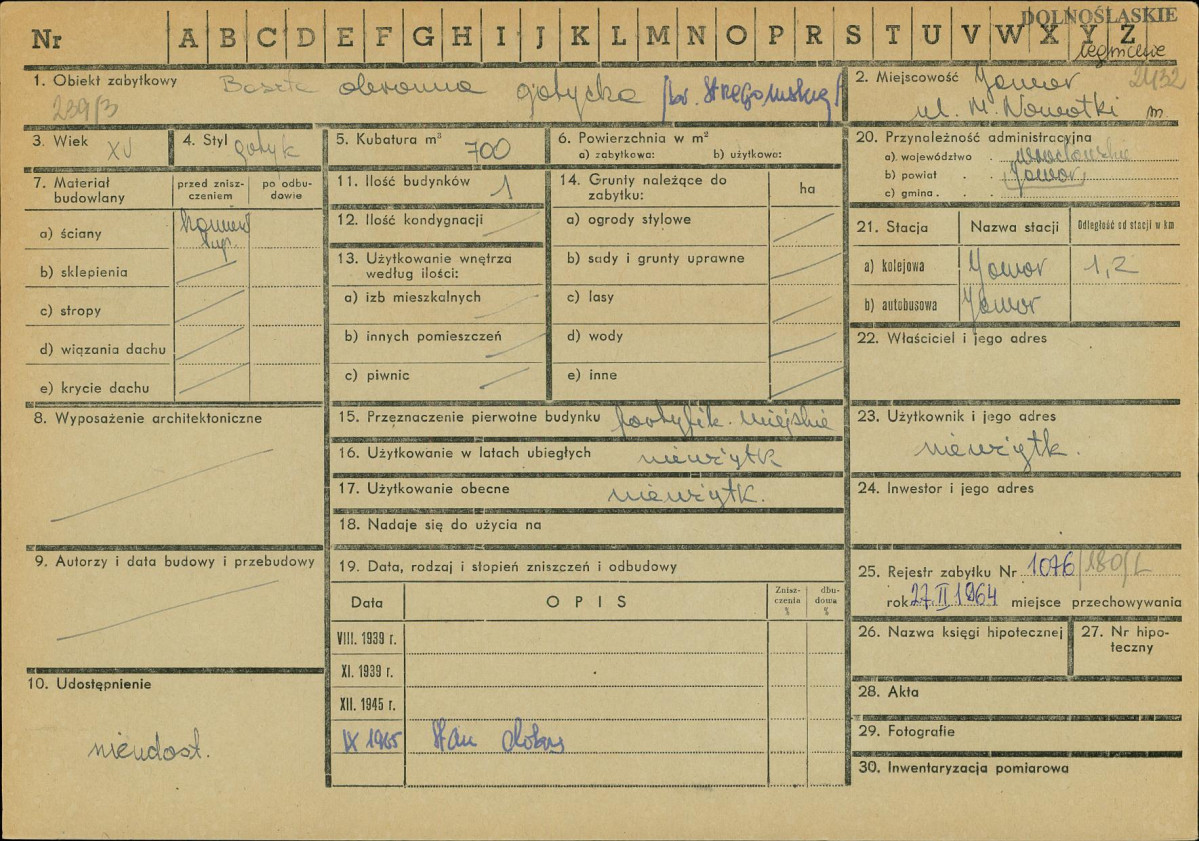 DOLNOŚLĄSKIE
Nr A B C D E F G H I J K L M N O P R S T U V W X Y Z
legnickie
1. Obiekt zabytkowy Baszta obronna gotycka /br. Strzegomska/
239/3
2. Miejscowość Jawor 2432
ul. M. Nowotki m
3. Wiek XV
4. Styl gotyk
5. Kubatura m³ 700
6. Powierzchnia w m²
a) zabytkowa: b) użytkowa:
7. Materiał budowlany
przed zniszczeniem
po odbudowie
a) ściany kamień łup.
b) sklepienia
c) stropy
d) wiązania dachu
e) krycie dachu
8. Wyposażenie architektoniczne
9. Autorzy i data budowy i przebudowy
10. Udostępnienie
nieudost.
11. Ilość budynków 1
12. Ilość kondygnacji
13. Użytkowanie wnętrza
według ilości:
a) izb mieszkalnych
b) innych pomieszczeń
c) piwnic
14. Grunty należące do
zabytku:
ha
a) ogrody stylowe
b) sady i grunty uprawne
c) lasy
d) wody
e) inne
15. Przeznaczenie pierwotne budynku fortyfik. miejskie
16. Użytkowanie w latach ubiegłych nieużytk
17. Użytkowanie obecne nieużytk.
18. Nadaje się do użycia na
19. Data, rodzaj i stopień zniszczeń i odbudowy
Data OPIS Zniszczenia % dbudowa %
VIII. 1939 r.
XI. 1939 r.
XII. 1945 r.
IX 1965 Stan dobry
20. Przynależność administracyjna
a) województwo wrocławskie
b) powiat Jawor
c) gmina
21. Stacja Nazwa stacji Odległość od stacji w km
a) kolejowa Jawor 1,2
b) autobusowa Jawor
22. Właściciel i jego adres
23. Użytkownik i jego adres
nieużytk.
24. Inwestor i jego adres
25. Rejestr zabytku Nr 1076/180/L
rok 27 II 1964 miejsce przechowywania
26. Nazwa księgi hipotecznej
27. Nr hipoteczny
28. Akta
29. Fotografie
30. Inwentaryzacja pomiarowa